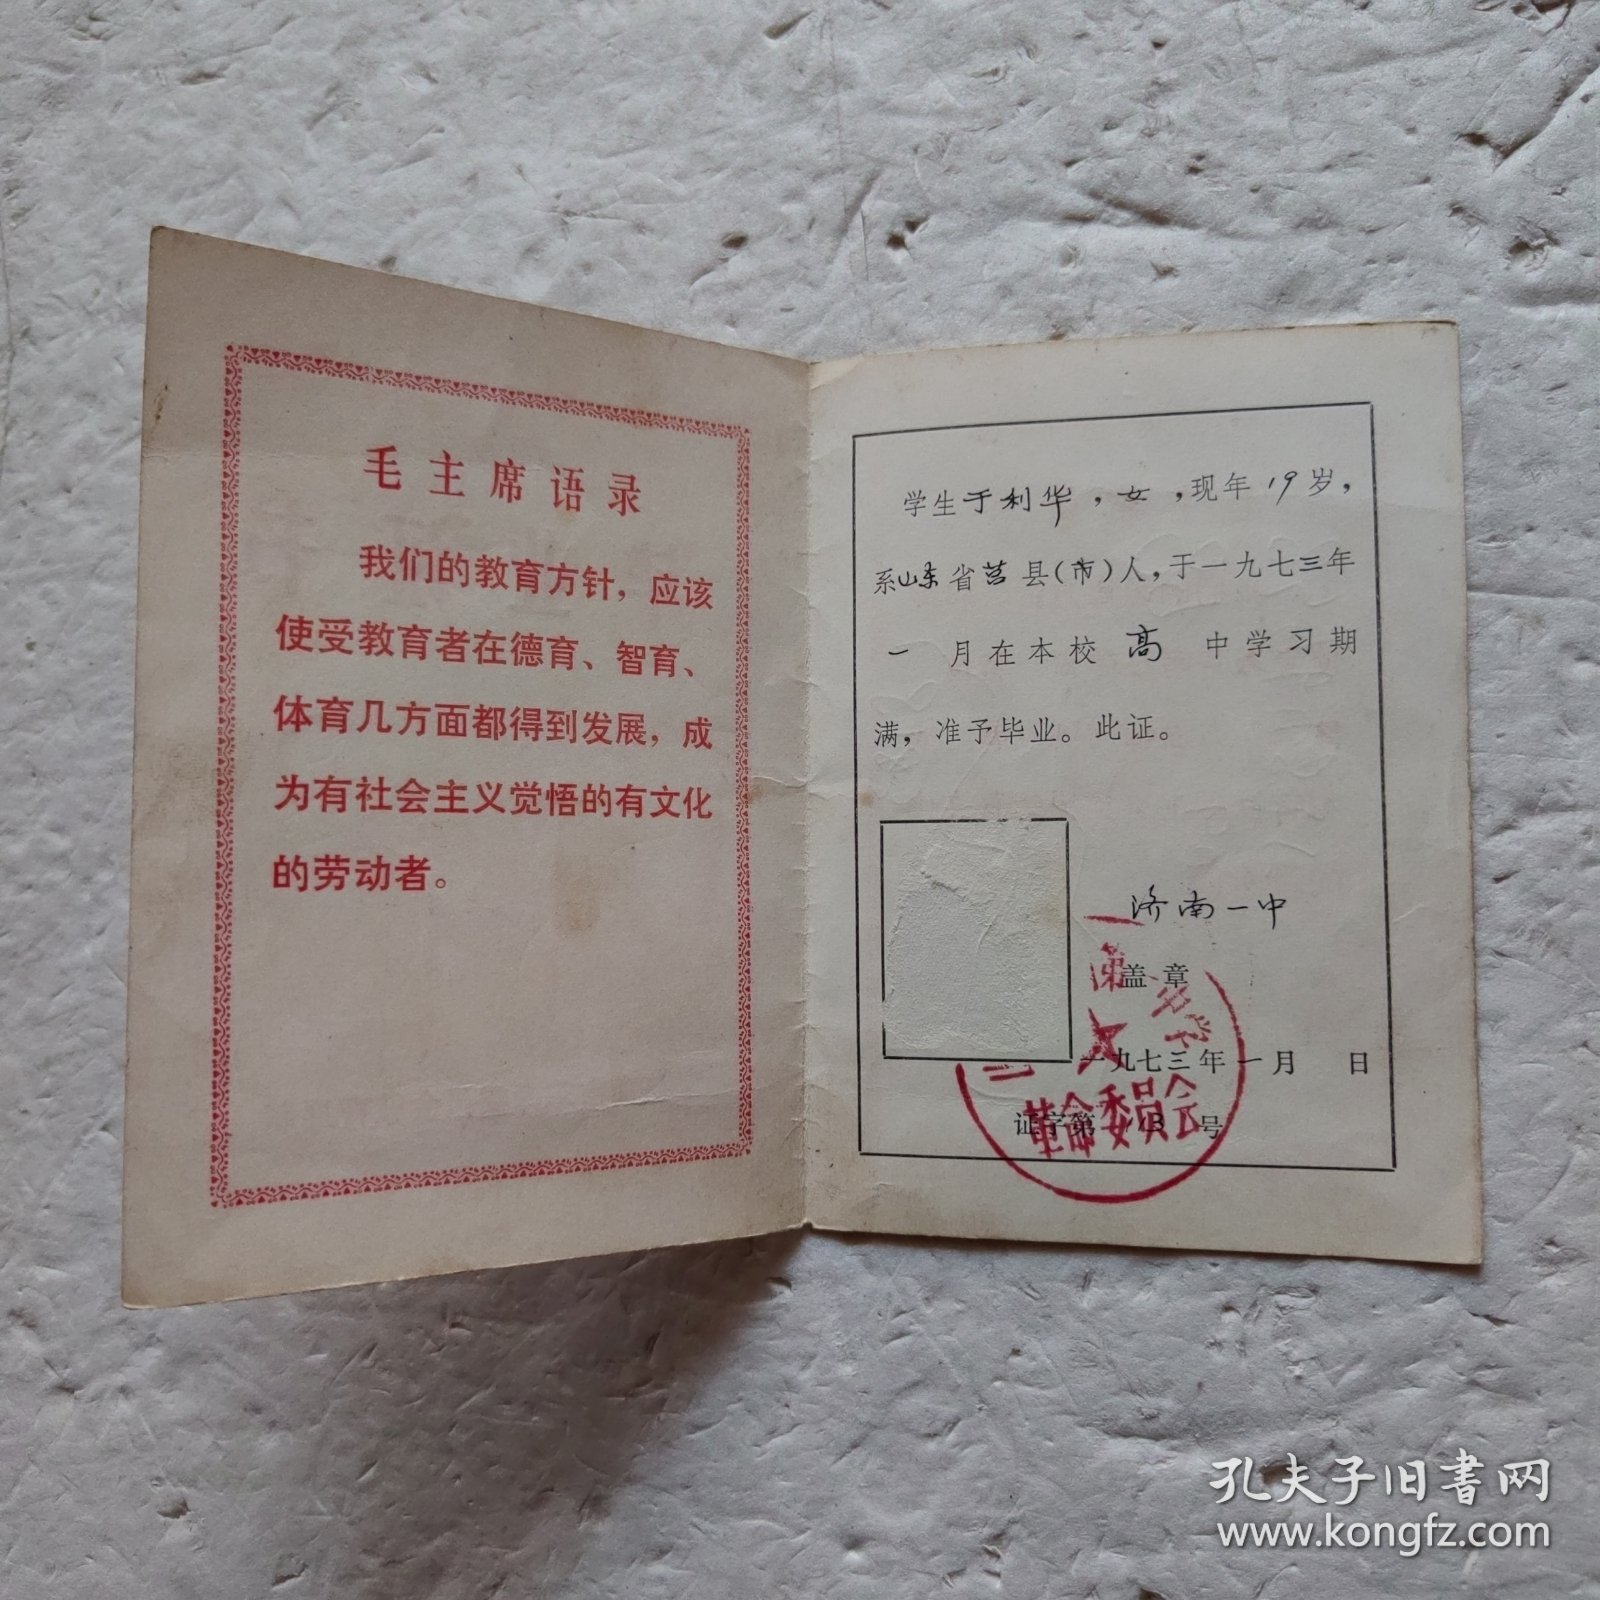 毛主席语录
我们的教育方针，应该
使受教育者在德育、智育、
体育几方面都得到发展，成
为有社会主义觉悟的有文化
的劳动者。
学生于利华，女，现年19岁，
系山东省莒县（市）人，于一九七三年
一月在本校高中学习期
满，准予毕业。此证。
济南一中
盖章
一九七三年一月 日
证字第 号
革命委员会
孔夫子旧书网
www.kongfz.com